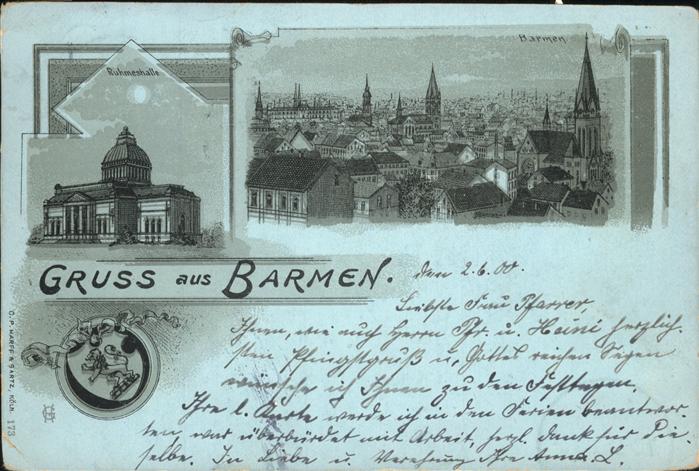 Ruhmeshalle
Barmen
GRUSS aus BARMEN.
den 2.6.00.
Liebste Frau Pfarrer,
Ihnen, wie auch Herrn Pfr. u. Heini herzlich-
sten Pfingstgruß u. Gottes reichen Segen
wünsche ich Ihnen zu den Festtagen.
Ihre l. Karte werde ich in den Ferien beantwor-
ten, war überbürdet mit Arbeit, herzl. Dank für Die-
selbe. In Liebe u. Verehrung Ihre Anna L.
KÖLN. 173